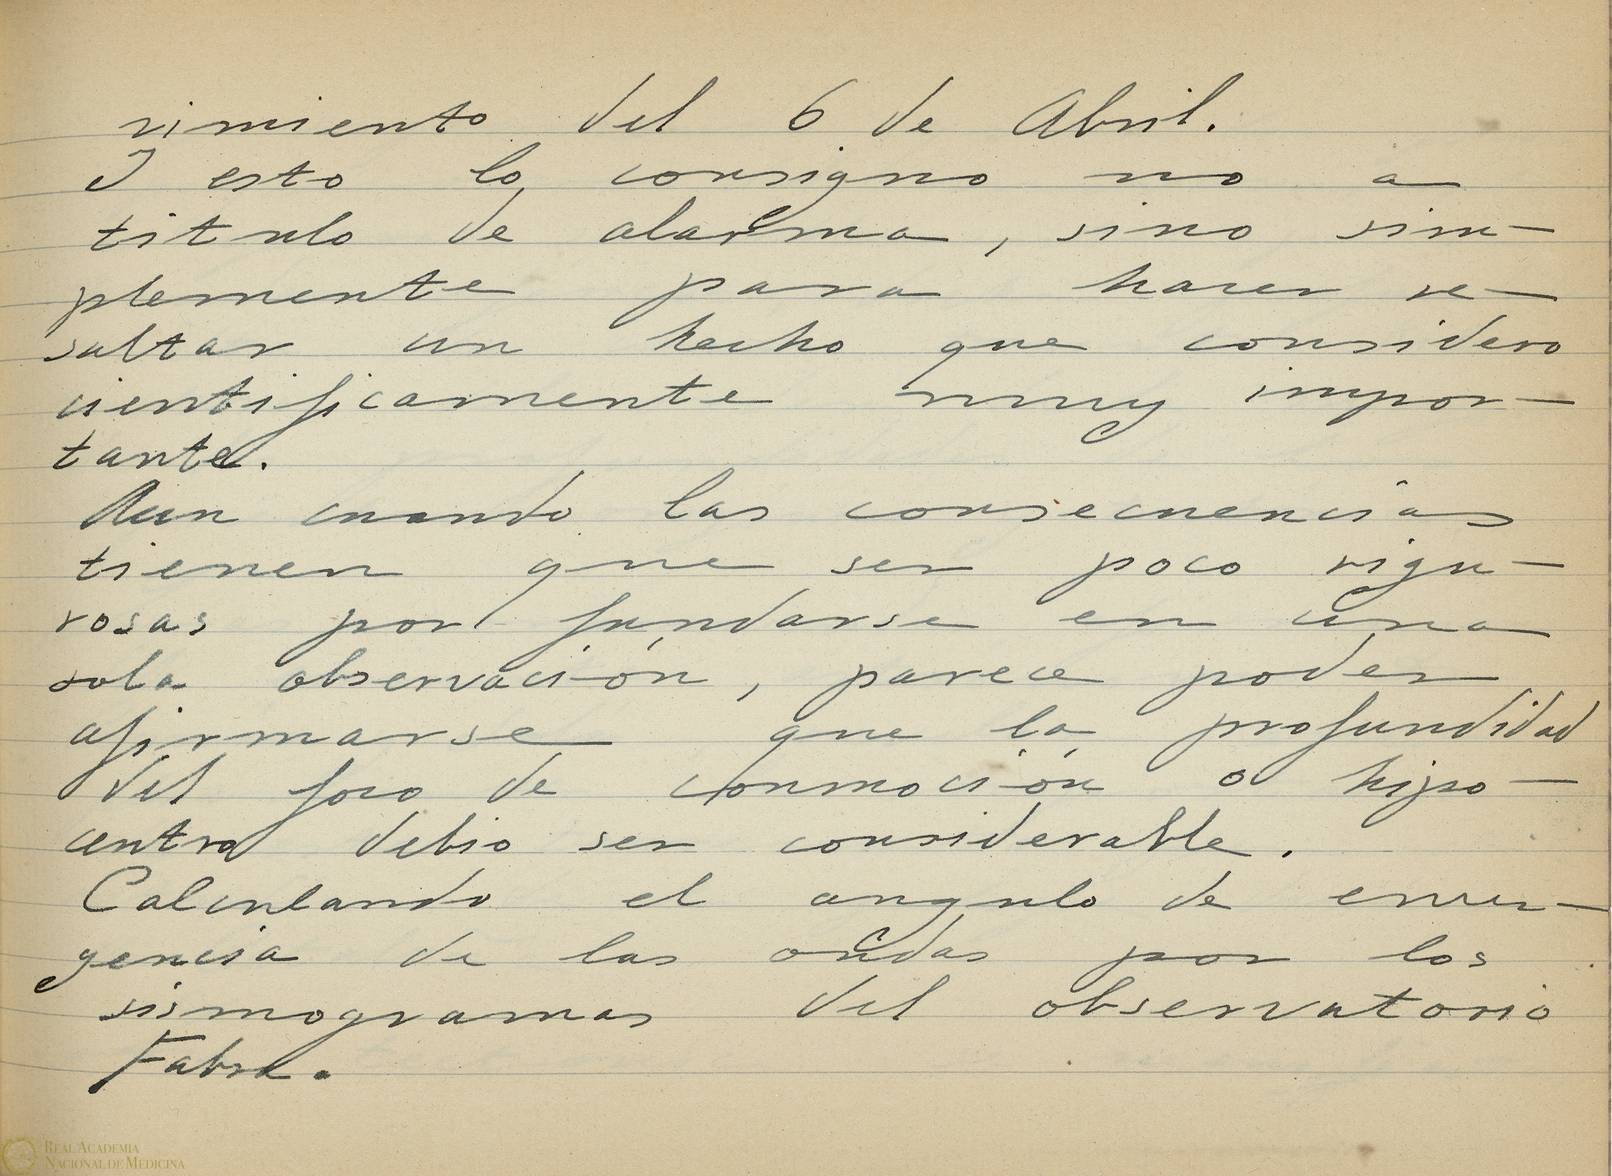 vimiento del 6 de Abril.
Y esto lo consigno no a
titulo de alarma, sino sim-
plemente para hacer re-
saltar un hecho que considero
cientificamente muy impor-
tante.
Aun cuando las consecuencias
tienen que ser poco rigu-
rosas por fundarse en una
sola observación, parece poder
afirmarse que la profundidad
del foco de conmoción o hipo-
centro debio ser considerable.
Calculando el angulo de emer-
gencia de las ondas por los
sismogramas del observatorio
Fabra.
REAL ACADEMIA
NACIONAL DE MEDICINA